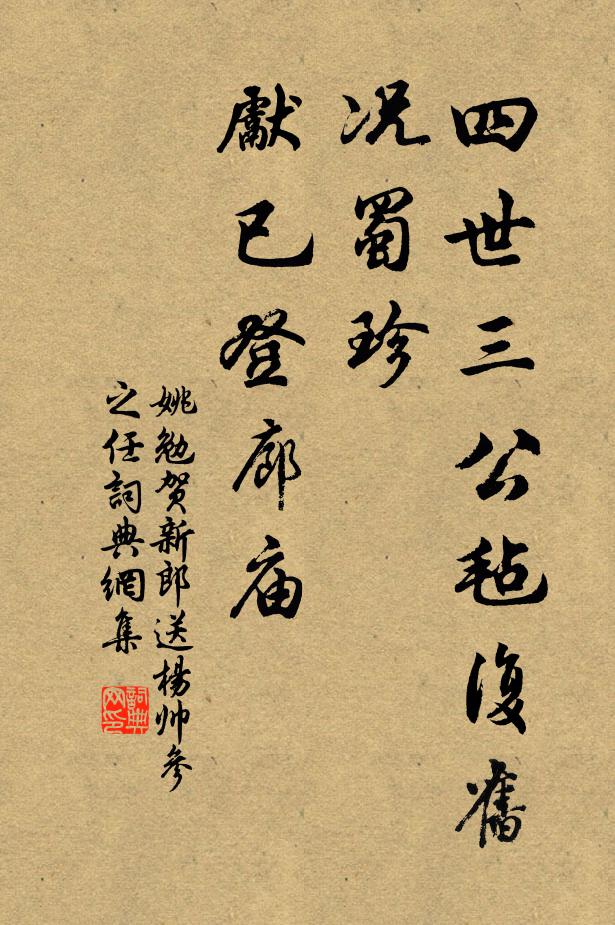 四世三公毡復舊
况蜀珍
獻已登廊庙
姚勉贺新郎送楊帅參
之任詞典網集
詞典网印